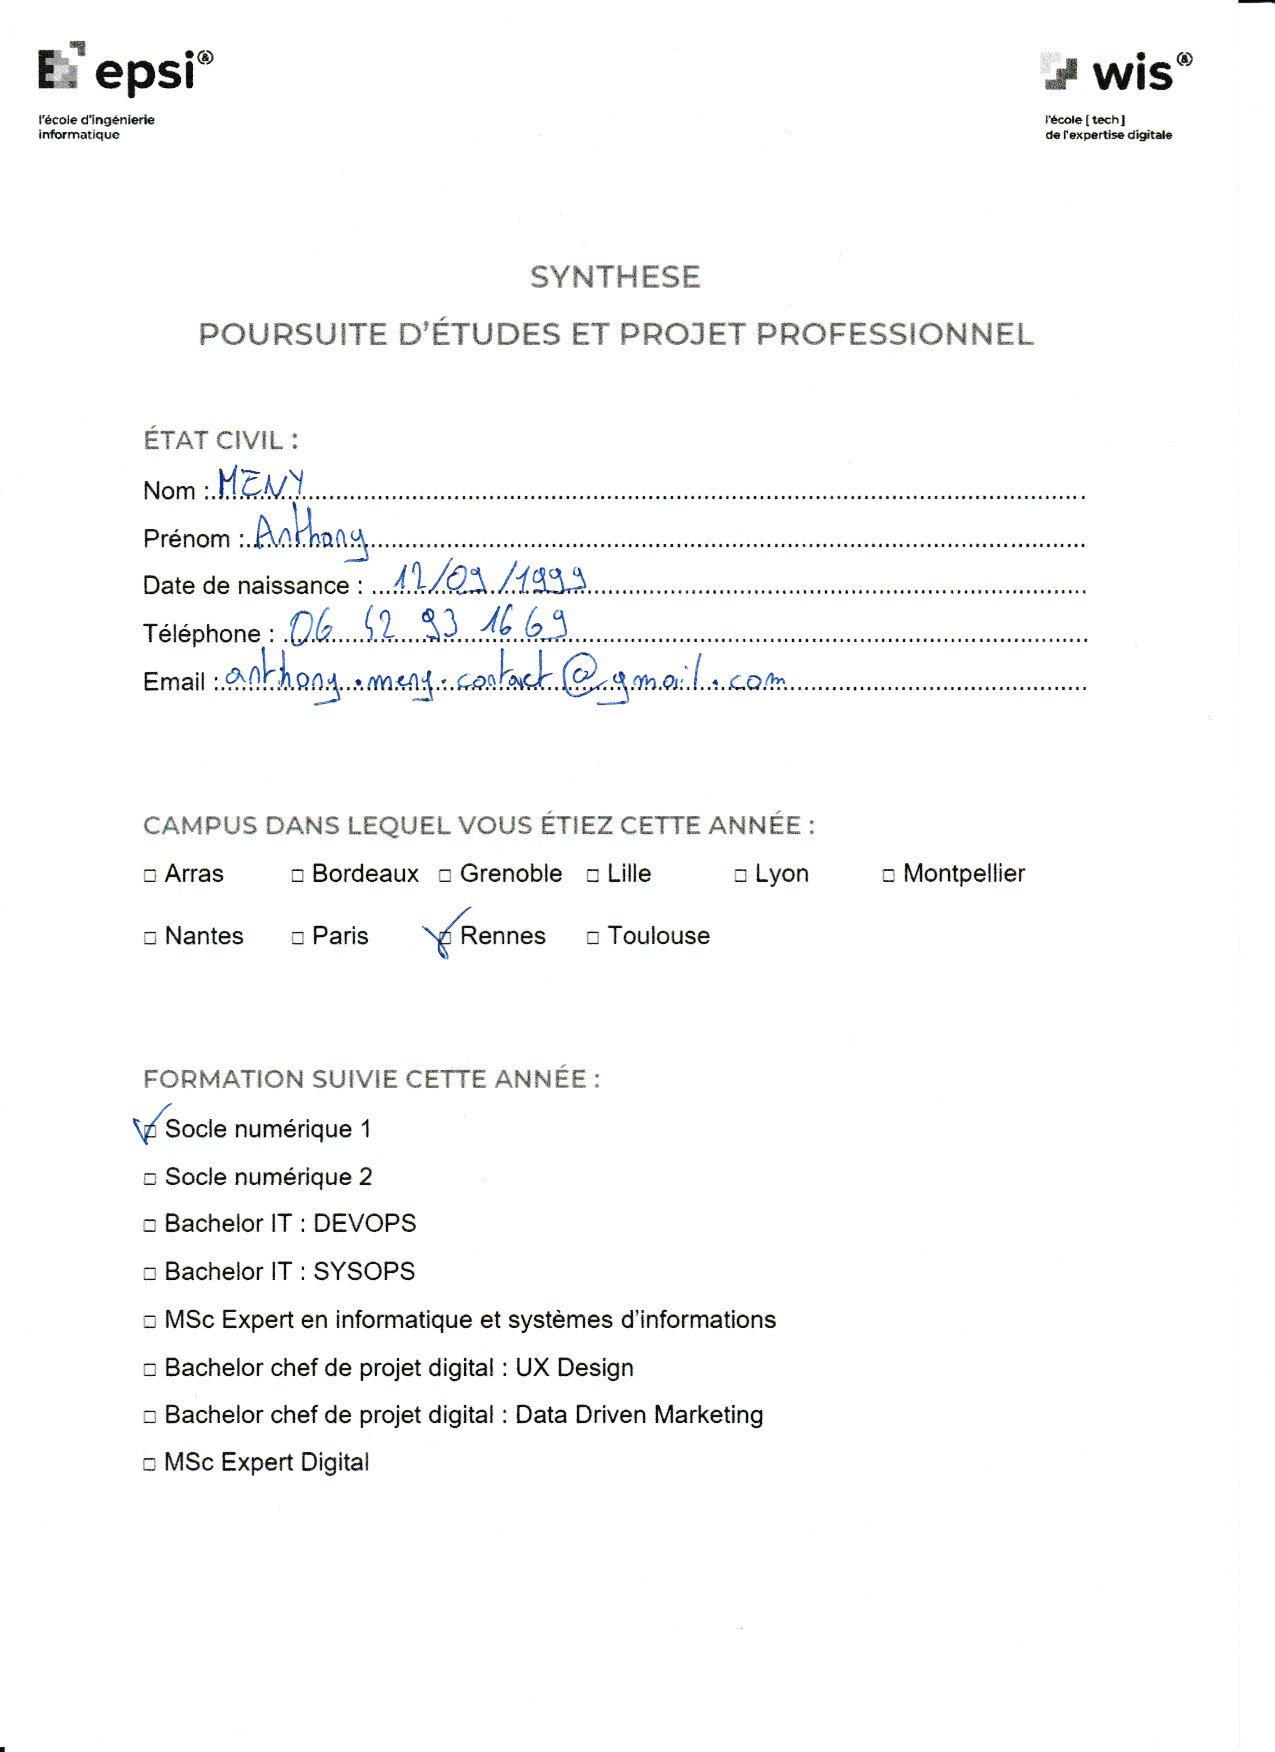 epsi
l'école d'ingénierie
informatique
wis
l'école [ tech ]
de l'expertise digitale
SYNTHESE
POURSUITE D'ÉTUDES ET PROJET PROFESSIONNEL
ÉTAT CIVIL :
Nom : MENY
Prénom : Anthony
Date de naissance : 12/09/1999
Téléphone : 06 52 93 16 69
Email : anthony.meny.contact@gmail.com
CAMPUS DANS LEQUEL VOUS ÉTIEZ CETTE ANNÉE :
□ Arras □ Bordeaux □ Grenoble □ Lille □ Lyon □ Montpellier
□ Nantes □ Paris ☑ Rennes □ Toulouse
FORMATION SUIVIE CETTE ANNÉE :
☑ Socle numérique 1
□ Socle numérique 2
□ Bachelor IT : DEVOPS
□ Bachelor IT : SYSOPS
□ MSc Expert en informatique et systèmes d'informations
□ Bachelor chef de projet digital : UX Design
□ Bachelor chef de projet digital : Data Driven Marketing
□ MSc Expert Digital